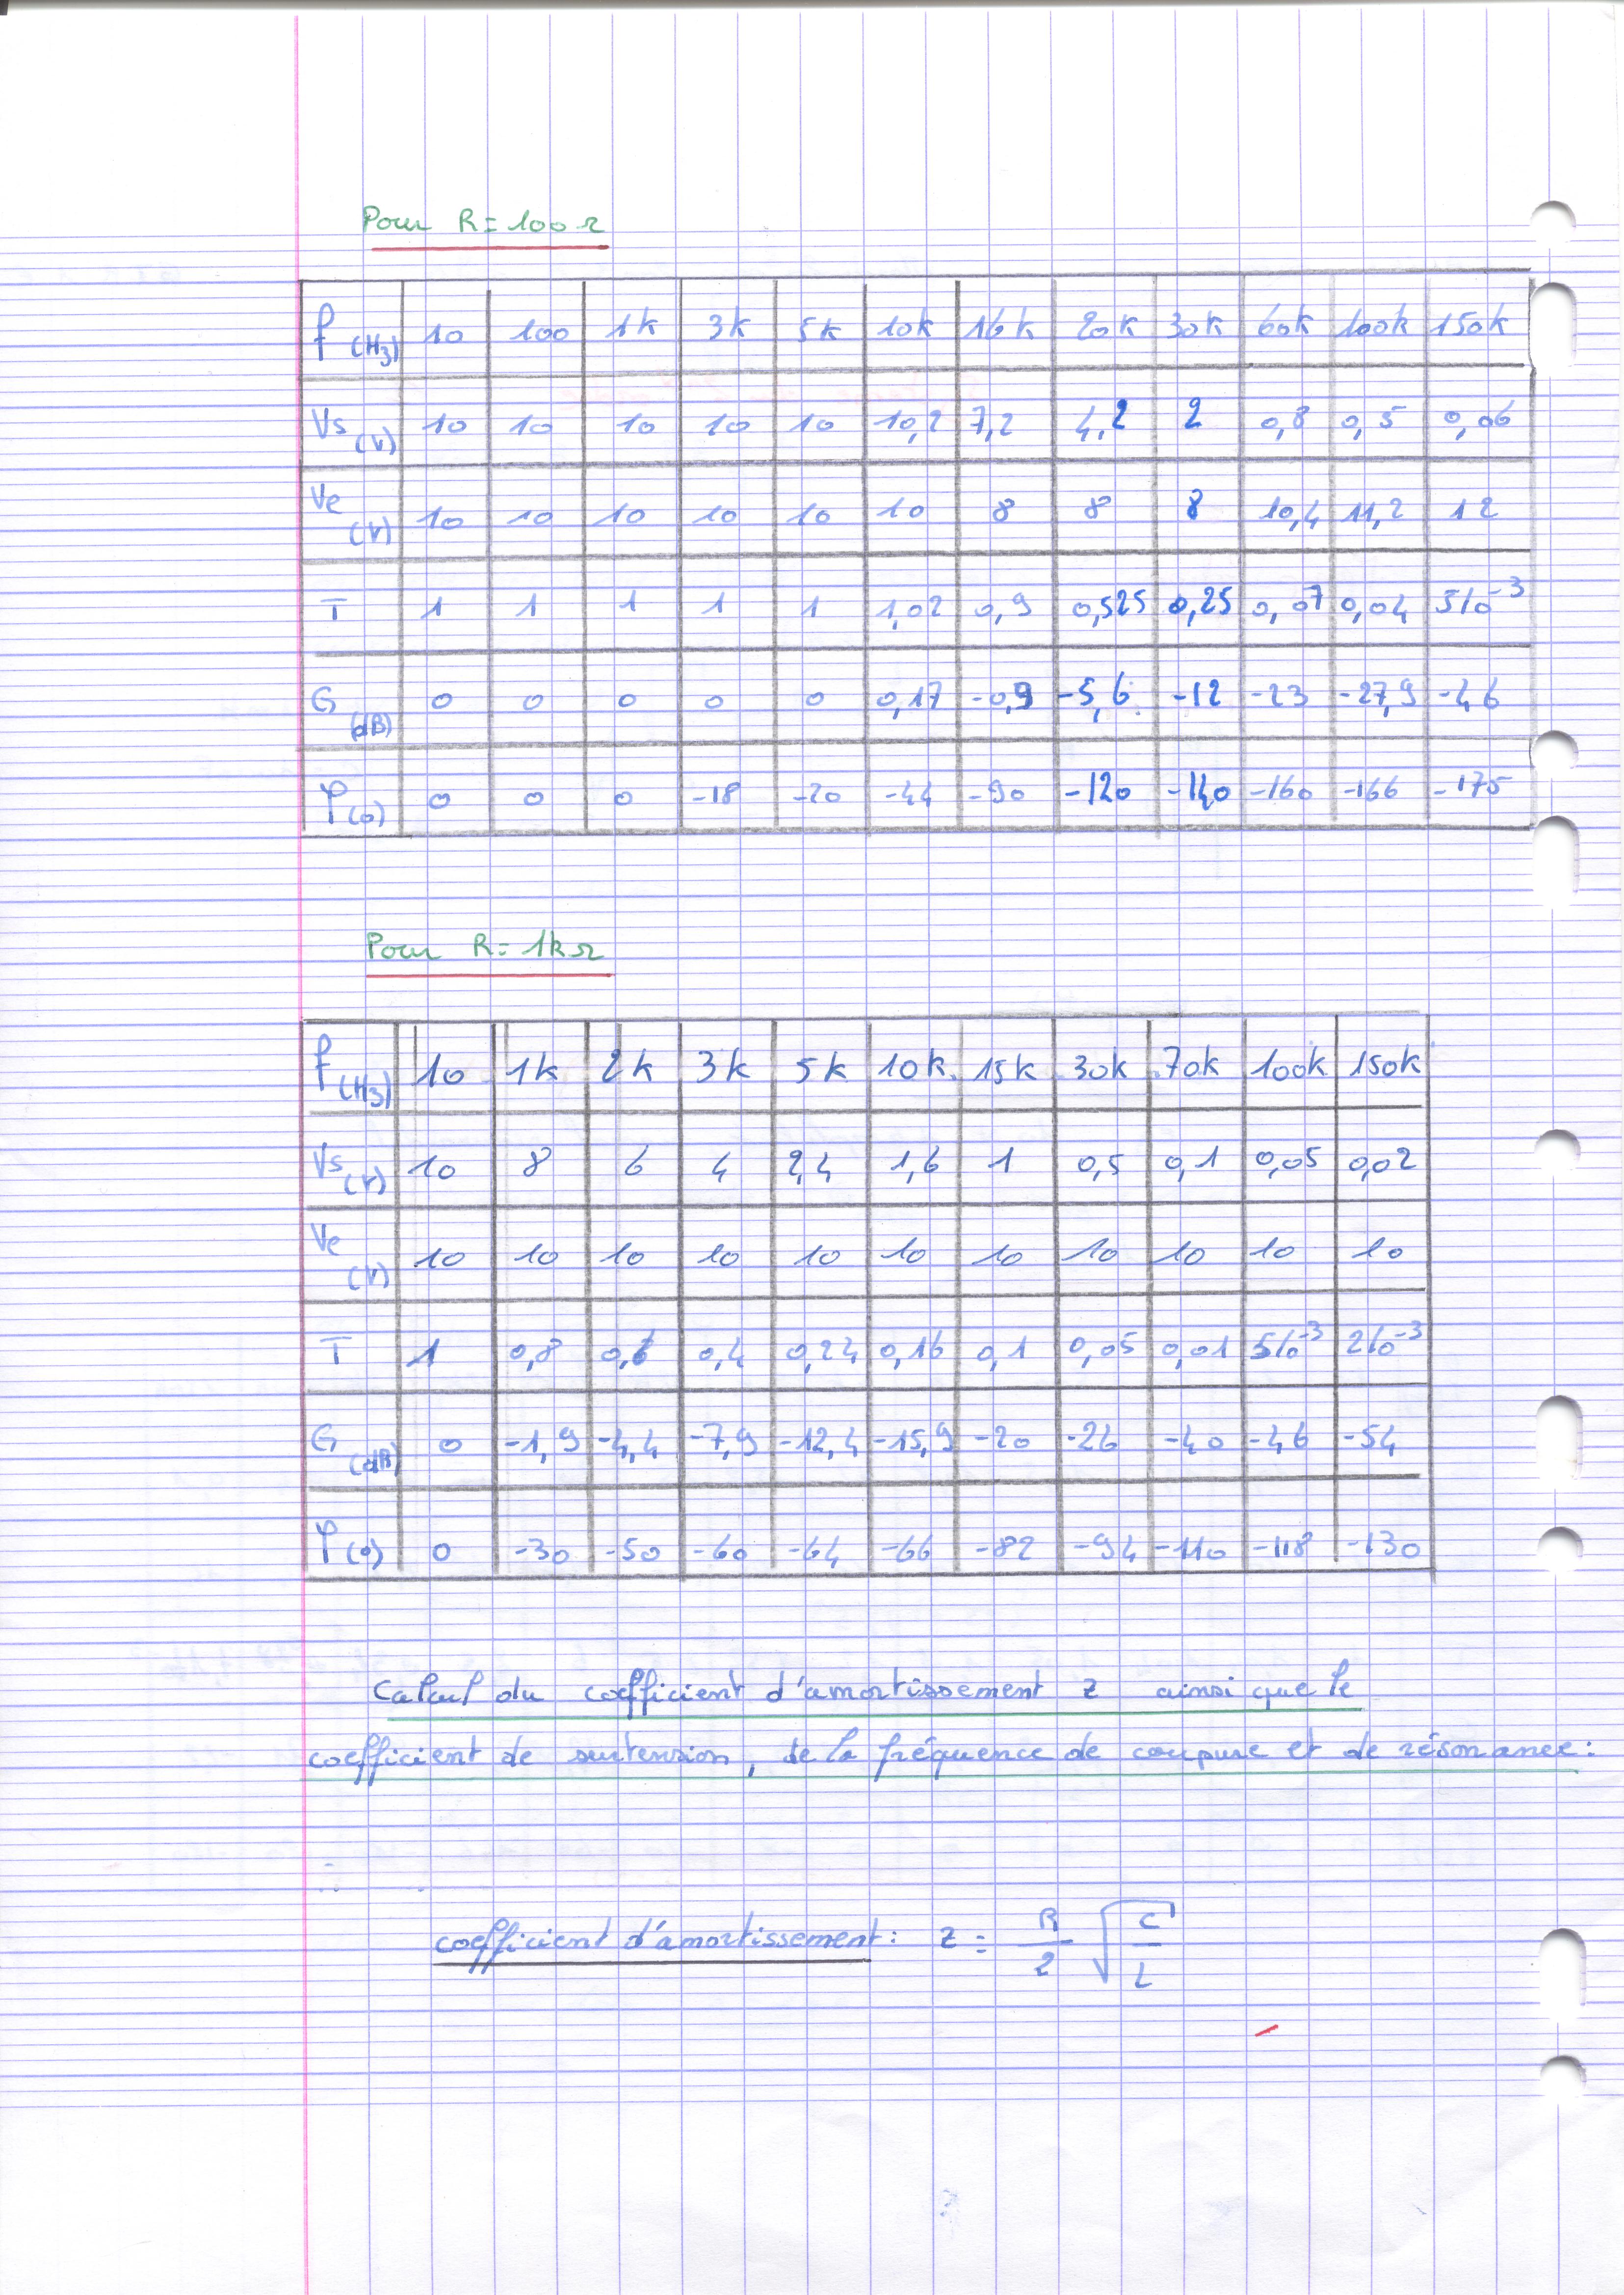 Pour R= 100 Ω
f (Hz) 10 100 1k 3k 5k 10k 16k 20k 30k 60k 100k 150k
Vs (V) 10 10 10 10 10 10,2 7,2 4,2 2 0,8 0,5 0,06
Ve (V) 10 10 10 10 10 10 8 8 8 10,4 11,2 12
T 1 1 1 1 1 1,02 0,9 0,525 0,25 0,07 0,04 510⁻³
G (dB) 0 0 0 0 0 0,17 -0,9 -5,6 -12 -23 -27,9 -46
φ(o) 0 0 0 -18 -20 -44 -90 -120 -140 -160 -166 -175
Pour R= 1kΩ
f (Hz) 10 1k 2k 3k 5k 10k 15k 30k 70k 100k 150k
Vs (V) 10 8 6 4 2,4 1,6 1 0,5 0,1 0,05 0,02
Ve (V) 10 10 10 10 10 10 10 10 10 10 10
T 1 0,8 0,6 0,4 0,24 0,16 0,1 0,05 0,01 510⁻³ 210⁻³
G (dB) 0 -1,9 -4,4 -7,9 -12,4 -15,9 -20 -26 -40 -46 -54
φ(o) 0 -30 -50 -60 -64 -66 -82 -94 -110 -118 -130
Calcul du coefficient d'amortissement z ainsi que le
coefficient de surtension, de la fréquence de coupure et de résonance:
coefficient d'amortissement: z = R/2 √(C/L)